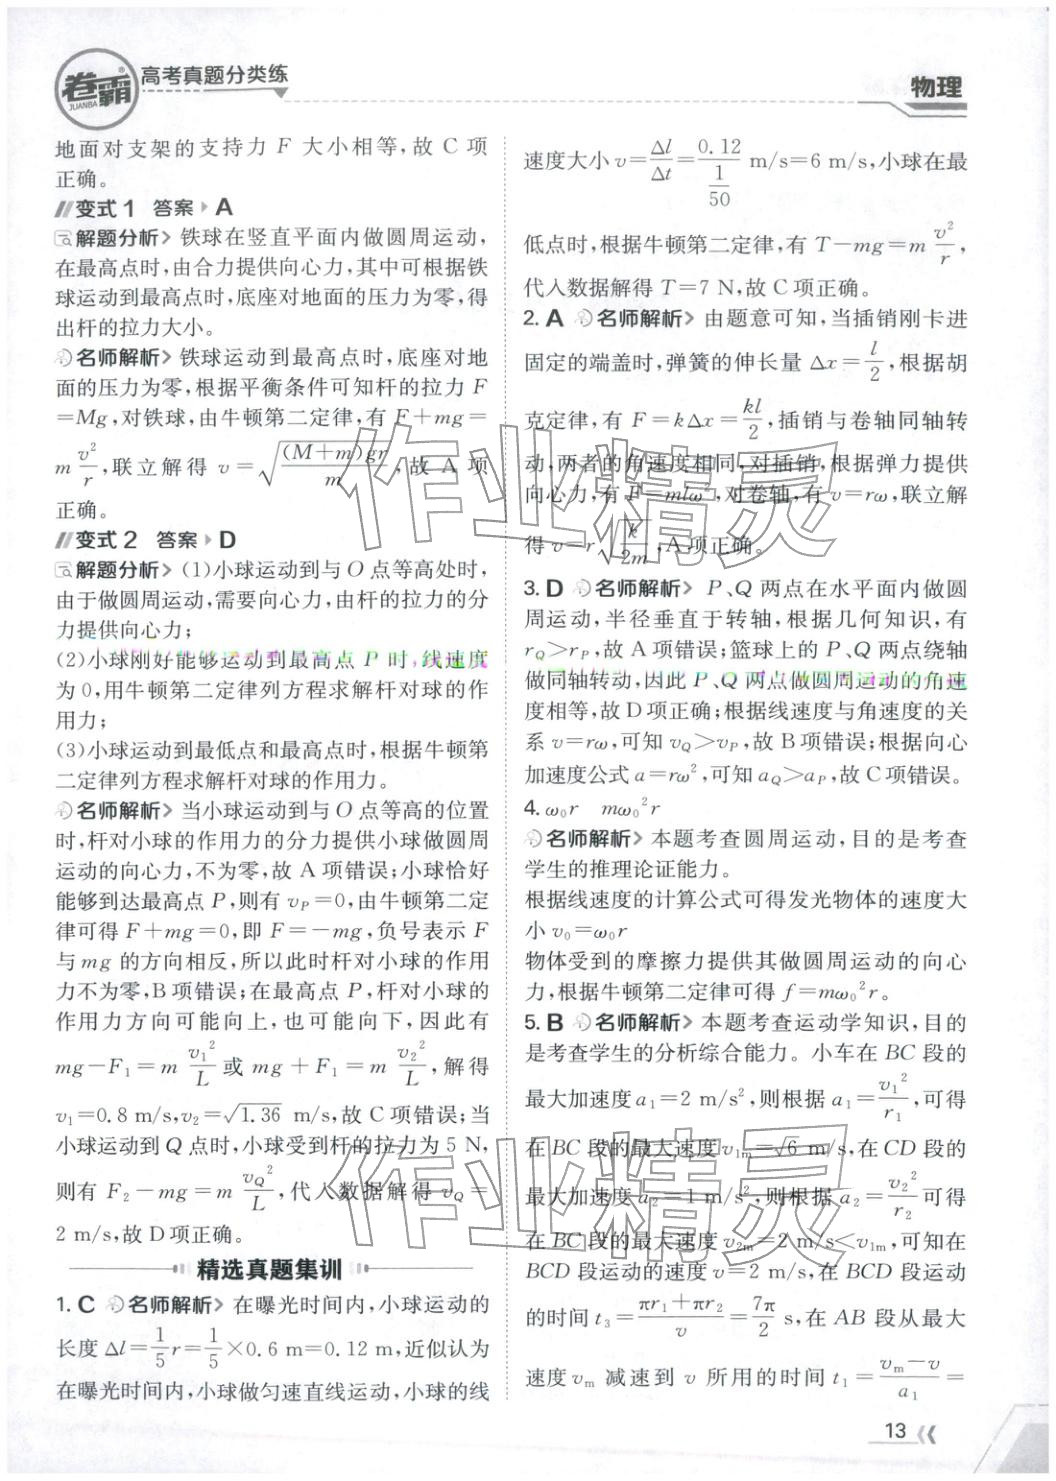 卷霸
JUANBA
高考真题分类练
物理
地面对支架的支持力 F 大小相等,故 C 项
正确。
变式 1 答案 A
解题分析 铁球在竖直平面内做圆周运动,
在最高点时,由合力提供向心力,其中可根据铁
球运动到最高点时,底座对地面的压力为零,得
出杆的拉力大小。
名师解析 铁球运动到最高点时,底座对地
面的压力为零,根据平衡条件可知杆的拉力 F
=Mg,对铁球,由牛顿第二定律,有 F+mg=
m v²/r,联立解得 v=√((M+m)gr/m),故 A 项
正确。
变式 2 答案 D
解题分析 (1)小球运动到与 O 点等高处时,
由于做圆周运动,需要向心力,由杆的拉力的分
力提供向心力;
(2)小球刚好能够运动到最高点 P 时,线速度
为 0,用牛顿第二定律列方程求解杆对球的作
用力;
(3)小球运动到最低点和最高点时,根据牛顿第
二定律列方程求解杆对球的作用力。
名师解析 当小球运动到与 O 点等高的位置
时,杆对小球的作用力的分力提供小球做圆周
运动的向心力,不为零,故 A 项错误;小球恰好
能够到达最高点 P,则有 v_P=0,由牛顿第二定
律可得 F+mg=0,即 F=-mg,负号表示 F
与 mg 的方向相反,所以此时杆对小球的作用
力不为零,B 项错误;在最高点 P,杆对小球的
作用力方向可能向上,也可能向下,因此有
mg-F₁=m v₁²/L 或 mg+F₁=m v₂²/L,解得
v₁=0.8 m/s,v₂=√1.36 m/s,故 C 项错误;当
小球运动到 Q 点时,小球受到杆的拉力为 5 N,
则有 F₂-mg=m v_Q²/L,代入数据解得 v_Q=
2 m/s,故 D 项正确。
精选真题集训
1. C 名师解析 在曝光时间内,小球运动的
长度 Δl=1/5 r=1/5×0.6 m=0.12 m,近似认为
在曝光时间内,小球做匀速直线运动,小球的线
速度大小 v=Δl/Δt=0.12/(1/50) m/s=6 m/s,小球在最
低点时,根据牛顿第二定律,有 T-mg=m v²/r,
代入数据解得 T=7 N,故 C 项正确。
2. A 名师解析 由题意可知,当插销刚卡进
固定的端盖时,弹簧的伸长量 Δx=l/2,根据胡
克定律,有 F=kΔx=kl/2,插销与卷轴同轴转
动,两者的角速度相同,对插销,根据弹力提供
向心力,有 F=mlω²,对卷轴,有 v=rω,联立解
得 v=r√(k/2m),A 项正确。
3. D 名师解析 P、Q 两点在水平面内做圆
周运动,半径垂直于转轴,根据几何知识,有
r_Q>r_P,故 A 项错误;篮球上的 P、Q 两点绕轴
做同轴转动,因此 P、Q 两点做圆周运动的角速
度相等,故 D 项正确;根据线速度与角速度的关
系 v=rω,可知 v_Q>v_P,故 B 项错误;根据向心
加速度公式 a=rω²,可知 a_Q>a_P,故 C 项错误。
4. ω₀r mω₀²r
名师解析 本题考查圆周运动,目的是考查
学生的推理论证能力。
根据线速度的计算公式可得发光物体的速度大
小 v₀=ω₀r
物体受到的摩擦力提供其做圆周运动的向心
力,根据牛顿第二定律可得 f=mω₀²r。
5. B 名师解析 本题考查运动学知识,目的
是考查学生的分析综合能力。小车在 BC 段的
最大加速度 a₁=2 m/s²,则根据 a₁=v₁²/r₁,可得
在 BC 段的最大速度 v₁ₘ=√6 m/s,在 CD 段的
最大加速度 a₂=1 m/s²,则根据 a₂=v₂²/r₂ 可得
在 BC 段的最大速度 v₂ₘ=2 m/s<v₁ₘ,可知在
BCD 段运动的速度 v=2 m/s,在 BCD 段运动
的时间 t₃=(πr₁+πr₂)/v=7π/2 s,在 AB 段从最大
速度 vₘ 减速到 v 所用的时间 t₁=(vₘ-v)/a₁=
13
作业精灵
作业精灵